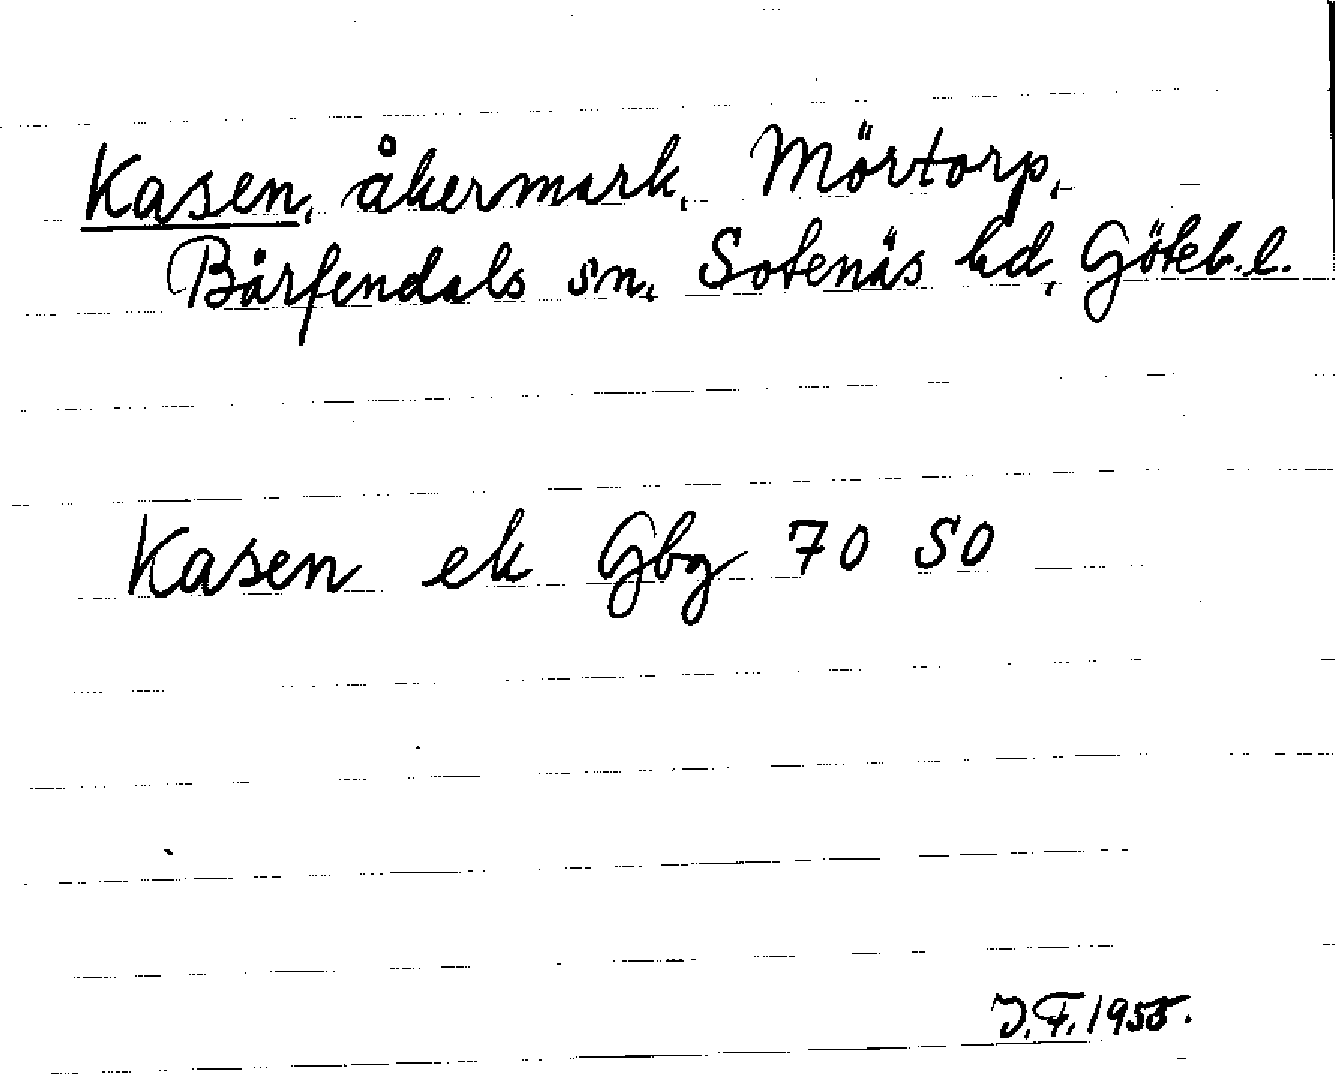 Kasen, åkermark, Mörtorp,
Bärfendals sn, Sotenäs hd, Göteb. l.
Kasen ek Gbg 70 SO
J. F. 1955.